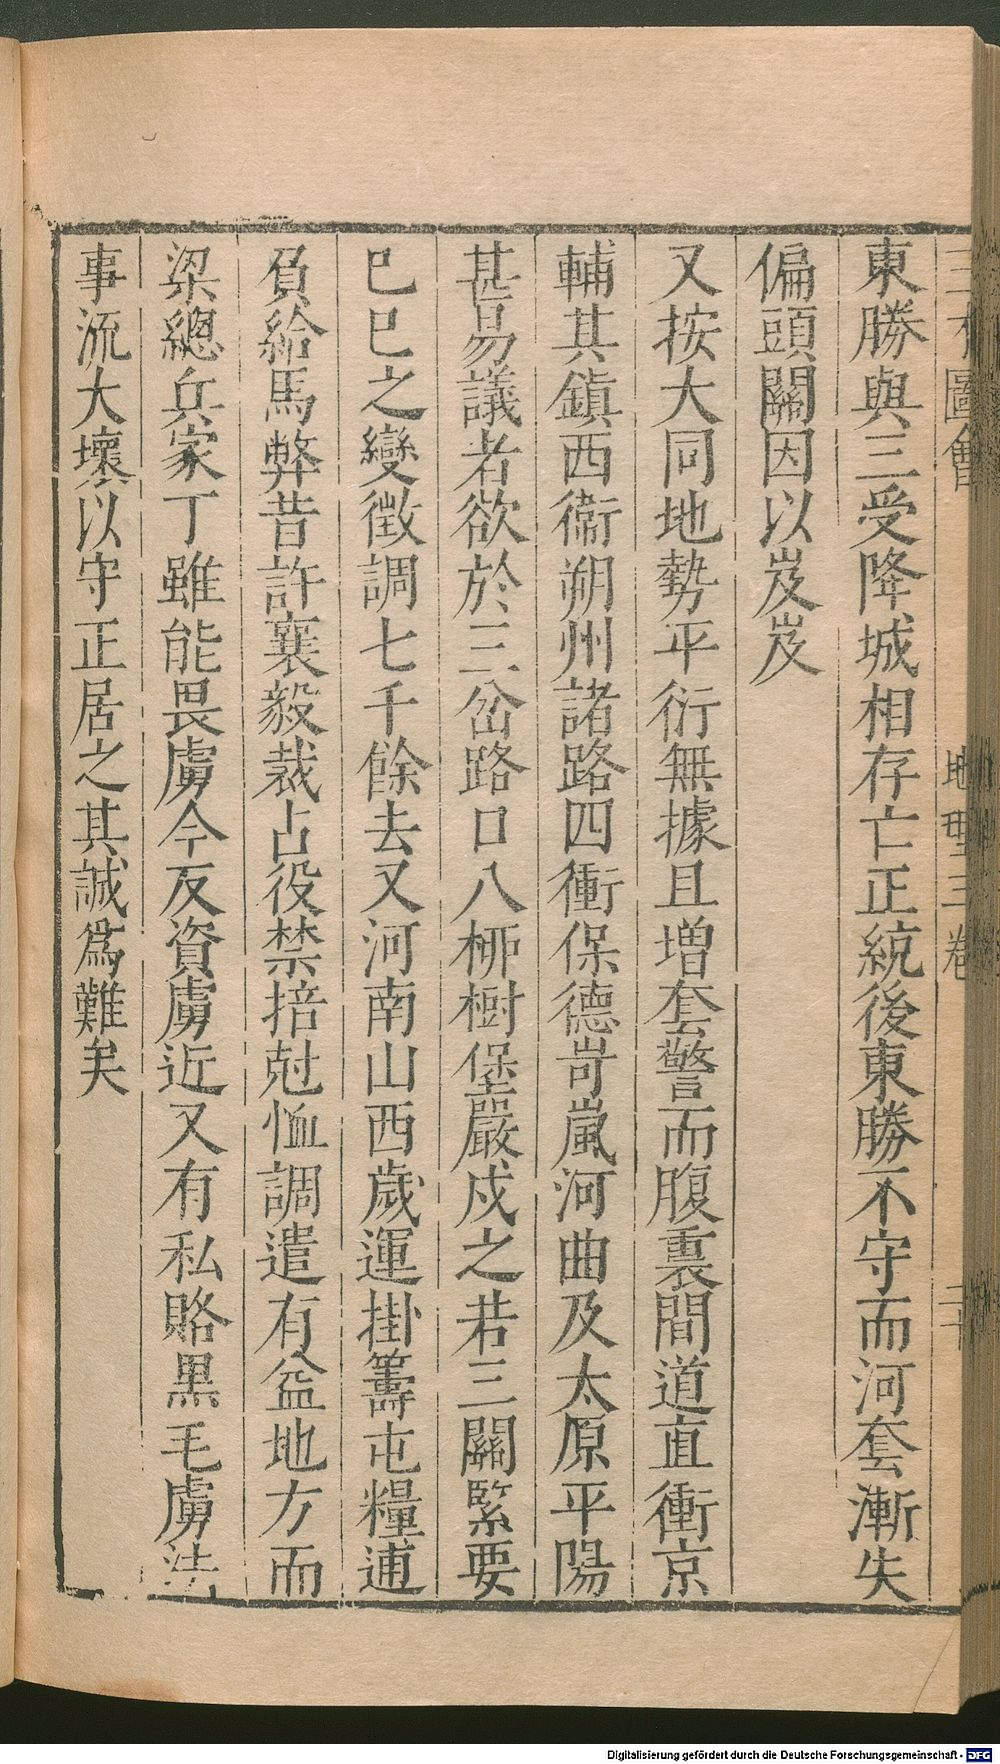 三才圖會 地理三卷 二十
東勝與三受降城相存亡正統後東勝不守而河套漸失
偏頭關因以岌岌
又按大同地勢平衍無據且增套警而腹裏間道直衝京
輔其鎮西衞朔州諸路四衝保德岢嵐河曲及太原平陽
甚易議者欲於三岔路口八柳樹堡嚴戍之若三關緊要
巳巳之變徵調七千餘去又河南山西歲運掛籌屯糧逋
負給馬弊昔許襄毅裁占役禁掊尅恤調遣有益地方而
梁總兵家丁雖能畏虜今反資虜近又有私賂黑毛虜法
事流大壞以守正居之其誠爲難矣
Digitalisierung gefördert durch die Deutsche Forschungsgemeinschaft - DFG